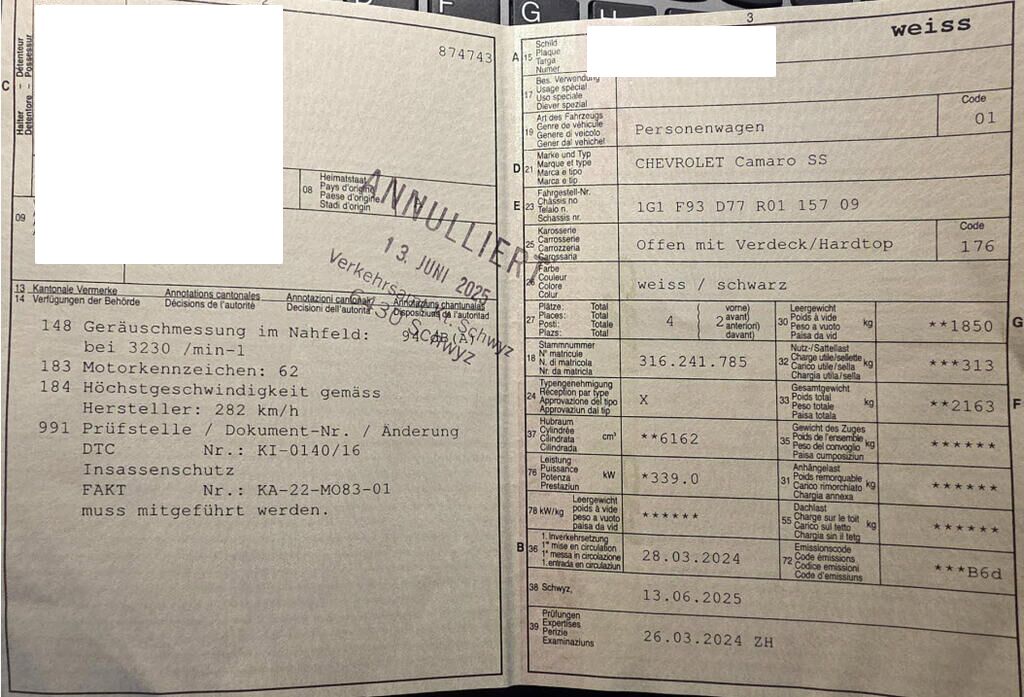 2
874743
C
Halter - Détenteur
Detentore - Possessur
08
Heimatstaat
Pays d'origine
Paese d'origine
Stadi d'origin
09
ANNULLIERT
13. JUNI 2025
Verkehrsamt Schwyz
6430 Schwyz
13 Kantonale Vermerke Annotations cantonales Annotazioni cantonali Annotaziuns chantunalas
14 Verfügungen der Behörde Décisions de l'autorité Decisioni dell'autorità Disposiziuns da l'autoritad
148 Geräuschmessung im Nahfeld: 94 dB(A)
bei 3230 /min-1
183 Motorkennzeichen: 62
184 Höchstgeschwindigkeit gemäss
Hersteller: 282 km/h
991 Prüfstelle / Dokument-Nr. / Änderung
DTC Nr.: KI-0140/16
Insassenschutz
FAKT Nr.: KA-22-MO83-01
muss mitgeführt werden.
G
3
weiss
A 15
Schild
Plaque
Targa
Numer
17
Bes. Verwendung
Usage spécial
Uso speciale
Diever spezial
19
Art des Fahrzeugs
Genre de véhicule
Genere di veicolo
Gener dal vehichel
Personenwagen
Code
01
D 21
Marke und Typ
Marque et type
Marca e tipo
Marca e tip
CHEVROLET Camaro SS
E 23
Fahrgestell-Nr.
Châssis no
Telaio n.
Schassis nr.
1G1 F93 D77 R01 157 09
25
Karosserie
Carrosserie
Carrozzeria
Carossaria
Offen mit Verdeck/Hardtop
Code
176
26
Farbe
Couleur
Colore
Colur
weiss / schwarz
27
Plätze: Total
Places: Total
Posti: Totale
Plazs: Total
4
2
vorne)
avant)
anteriori)
davant)
30
Leergewicht
Poids à vide
Peso a vuoto
Paisa da vid
kg
**1850
G
18
Stammnummer
N° matricule
N. di matricola
Nr. da matricla
316.241.785
32
Nutz-/Sattellast
Charge utile/sellette
Carico utile/sella
Chargia utila/sella
kg
***313
24
Typengenehmigung
Réception par type
Approvazione del tipo
Approvaziun dal tip
X
33
Gesamtgewicht
Poids total
Peso totale
Paisa totala
kg
**2163
F
37
Hubraum
Cylindrée
Cilindrata
Cilindrada
cm³
**6162
35
Gewicht des Zuges
Poids de l'ensemble
Peso del convoglio
Paisa cumposiziun
kg
******
76
Leistung
Puissance
Potenza
Prestaziun
kW
*339.0
31
Anhängelast
Poids remorquable
Carico rimorchiato
Chargia annexa
kg
******
78 kW/kg
Leergewicht
poids à vide
peso a vuoto
paisa da vid
******
55
Dachlast
Charge sur le toit
Carico sul tetto
Chargia sin il tetg
kg
******
B 36
1. Inverkehrsetzung
1re mise en circulation
1a messa in circolazione
1. entrada en circulaziun
28.03.2024
72
Emissionscode
Code émissions
Codice emissioni
Code d'emissiuns
***B6d
38 Schwyz,
13.06.2025
39
Prüfungen
Expertises
Perizie
Examinaziuns
26.03.2024 ZH